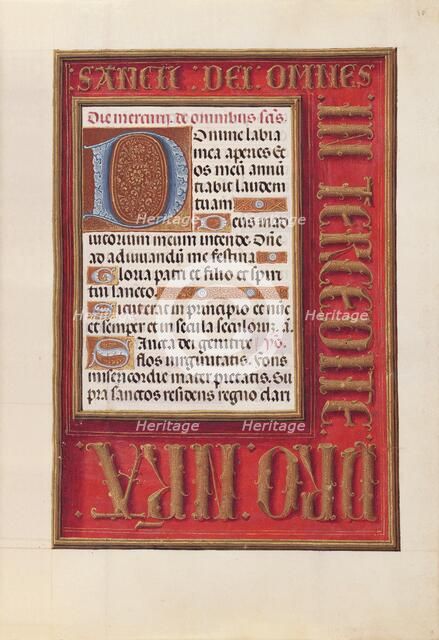 SANCTI · DEI · OMNES
IN TERCEDITE
PRO · NRA
Die mercurij. de omnibus scis.
Domine labia
mea aperies Et
os meū annū
tiabit laudem
tuam
Deus in ad
iutorium meum intende. Dn̄e
ad adiuuandū me festina
Gloria patri et filio et spiri
tui sancto.
Sicut erat in principio et nūc
et semper et in secula seculorū. a.
Sancta dei genitrix Yp̄o.
flos uirginitatis. Fons
misericordie mater pietatis. Su
pra sanctos residens regno clari
Heritage
Heritage
Heritage
Heritage
Heritage
Heritage
Heritage
Heritage